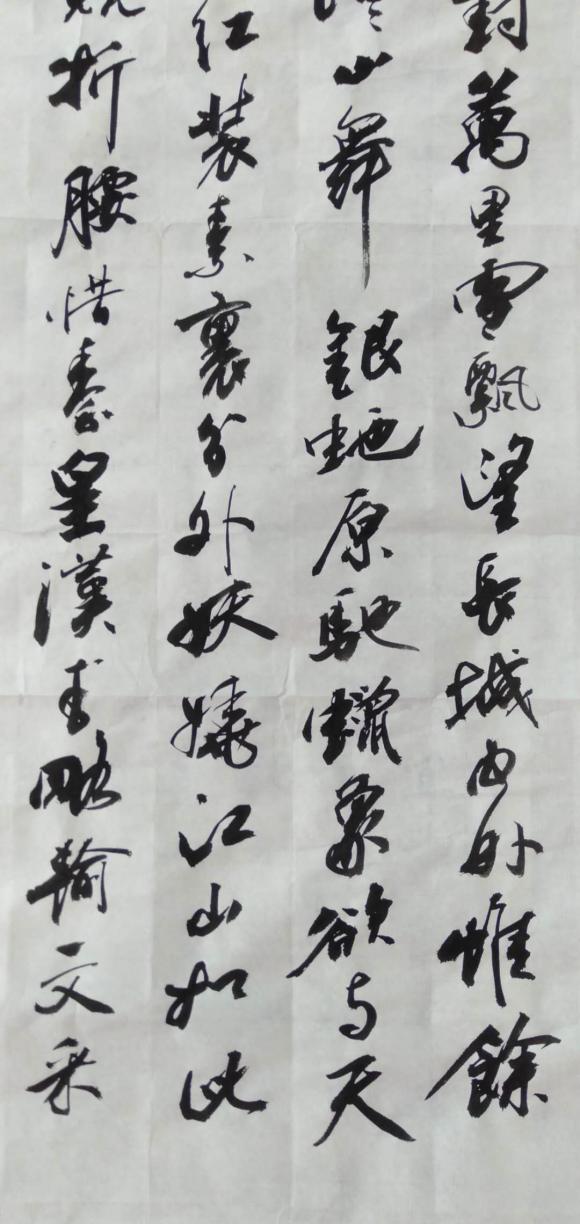 封萬里雪飄望長城內外惟餘
山舞銀虵原馳蠟象欲与天
紅裝素裹分外妖嬈江山如此
折腰惜秦皇漢武略輸文采